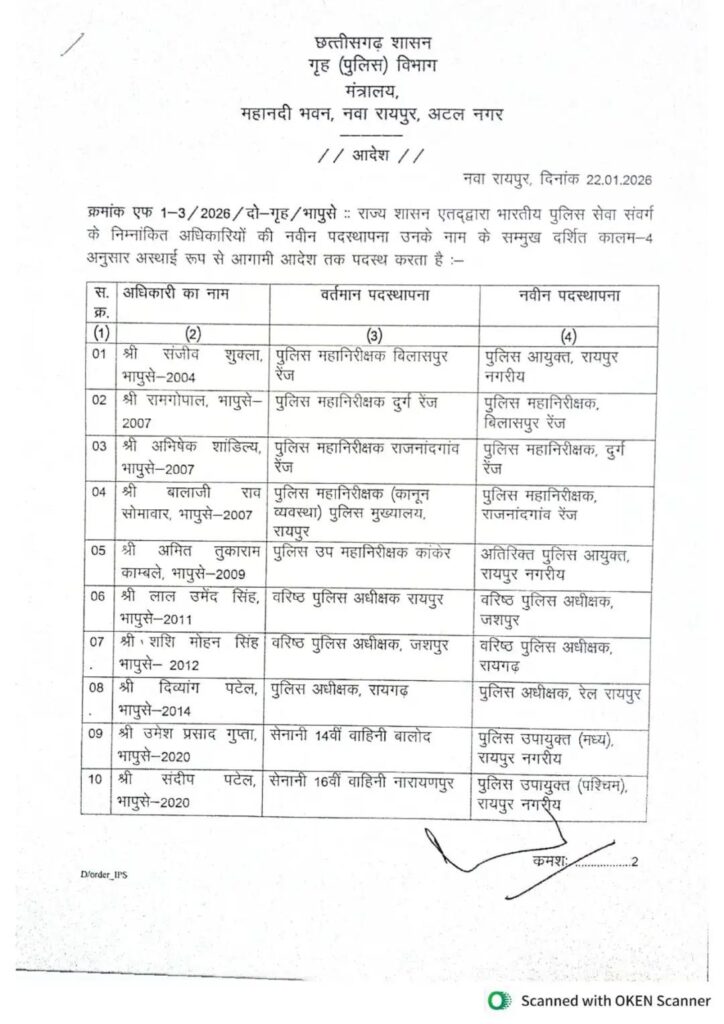 छत्तीसगढ़ शासन
गृह (पुलिस) विभाग
मंत्रालय,
महानदी भवन, नवा रायपुर, अटल नगर
// आदेश //
नवा रायपुर, दिनांक 22.01.2026
क्रमांक एफ 1-3/2026/दो-गृह/भापुसे :: राज्य शासन एतद्द्वारा भारतीय पुलिस सेवा संवर्ग
के निम्नांकित अधिकारियों की नवीन पदस्थापना उनके नाम के सम्मुख दर्शित कालम-4
अनुसार अस्थाई रूप से आगामी आदेश तक पदस्थ करता है :-
स. क्र. अधिकारी का नाम वर्तमान पदस्थापना नवीन पदस्थापना
(1) (2) (3) (4)
01 श्री संजीव शुक्ला, पुलिस महानिरीक्षक बिलासपुर पुलिस आयुक्त, रायपुर
भापुसे-2004 रेंज नगरीय
02 श्री रामगोपाल, भापुसे- पुलिस महानिरीक्षक दुर्ग रेंज पुलिस महानिरीक्षक,
2007 बिलासपुर रेंज
03 श्री अभिषेक शांडिल्य, पुलिस महानिरीक्षक राजनांदगांव पुलिस महानिरीक्षक, दुर्ग
भापुसे-2007 रेंज रेंज
04 श्री बालाजी राव पुलिस महानिरीक्षक (कानून पुलिस महानिरीक्षक,
सोमावार, भापुसे-2007 व्यवस्था) पुलिस मुख्यालय, राजनांदगांव रेंज
रायपुर
05 श्री अमित तुकाराम पुलिस उप महानिरीक्षक कांकेर अतिरिक्त पुलिस आयुक्त,
काम्बले, भापुसे-2009 रायपुर नगरीय
06 श्री लाल उमेंद सिंह, वरिष्ठ पुलिस अधीक्षक रायपुर वरिष्ठ पुलिस अधीक्षक,
भापुसे-2011 जशपुर
07 श्री शशि मोहन सिंह वरिष्ठ पुलिस अधीक्षक, जशपुर वरिष्ठ पुलिस अधीक्षक,
. भापुसे- 2012 रायगढ़
08 श्री दिव्यांग पटेल, पुलिस अधीक्षक, रायगढ़ पुलिस अधीक्षक, रेल रायपुर
. भापुसे-2014
09 श्री उमेश प्रसाद गुप्ता, सेनानी 14वीं वाहिनी बालोद पुलिस उपायुक्त (मध्य),
भापुसे-2020 रायपुर नगरीय
10 श्री संदीप पटेल, सेनानी 16वीं वाहिनी नारायणपुर पुलिस उपायुक्त (पश्चिम),
भापुसे-2020 रायपुर नगरीय
कमशः ..................2
D/order_IPS
Scanned with OKEN Scanner